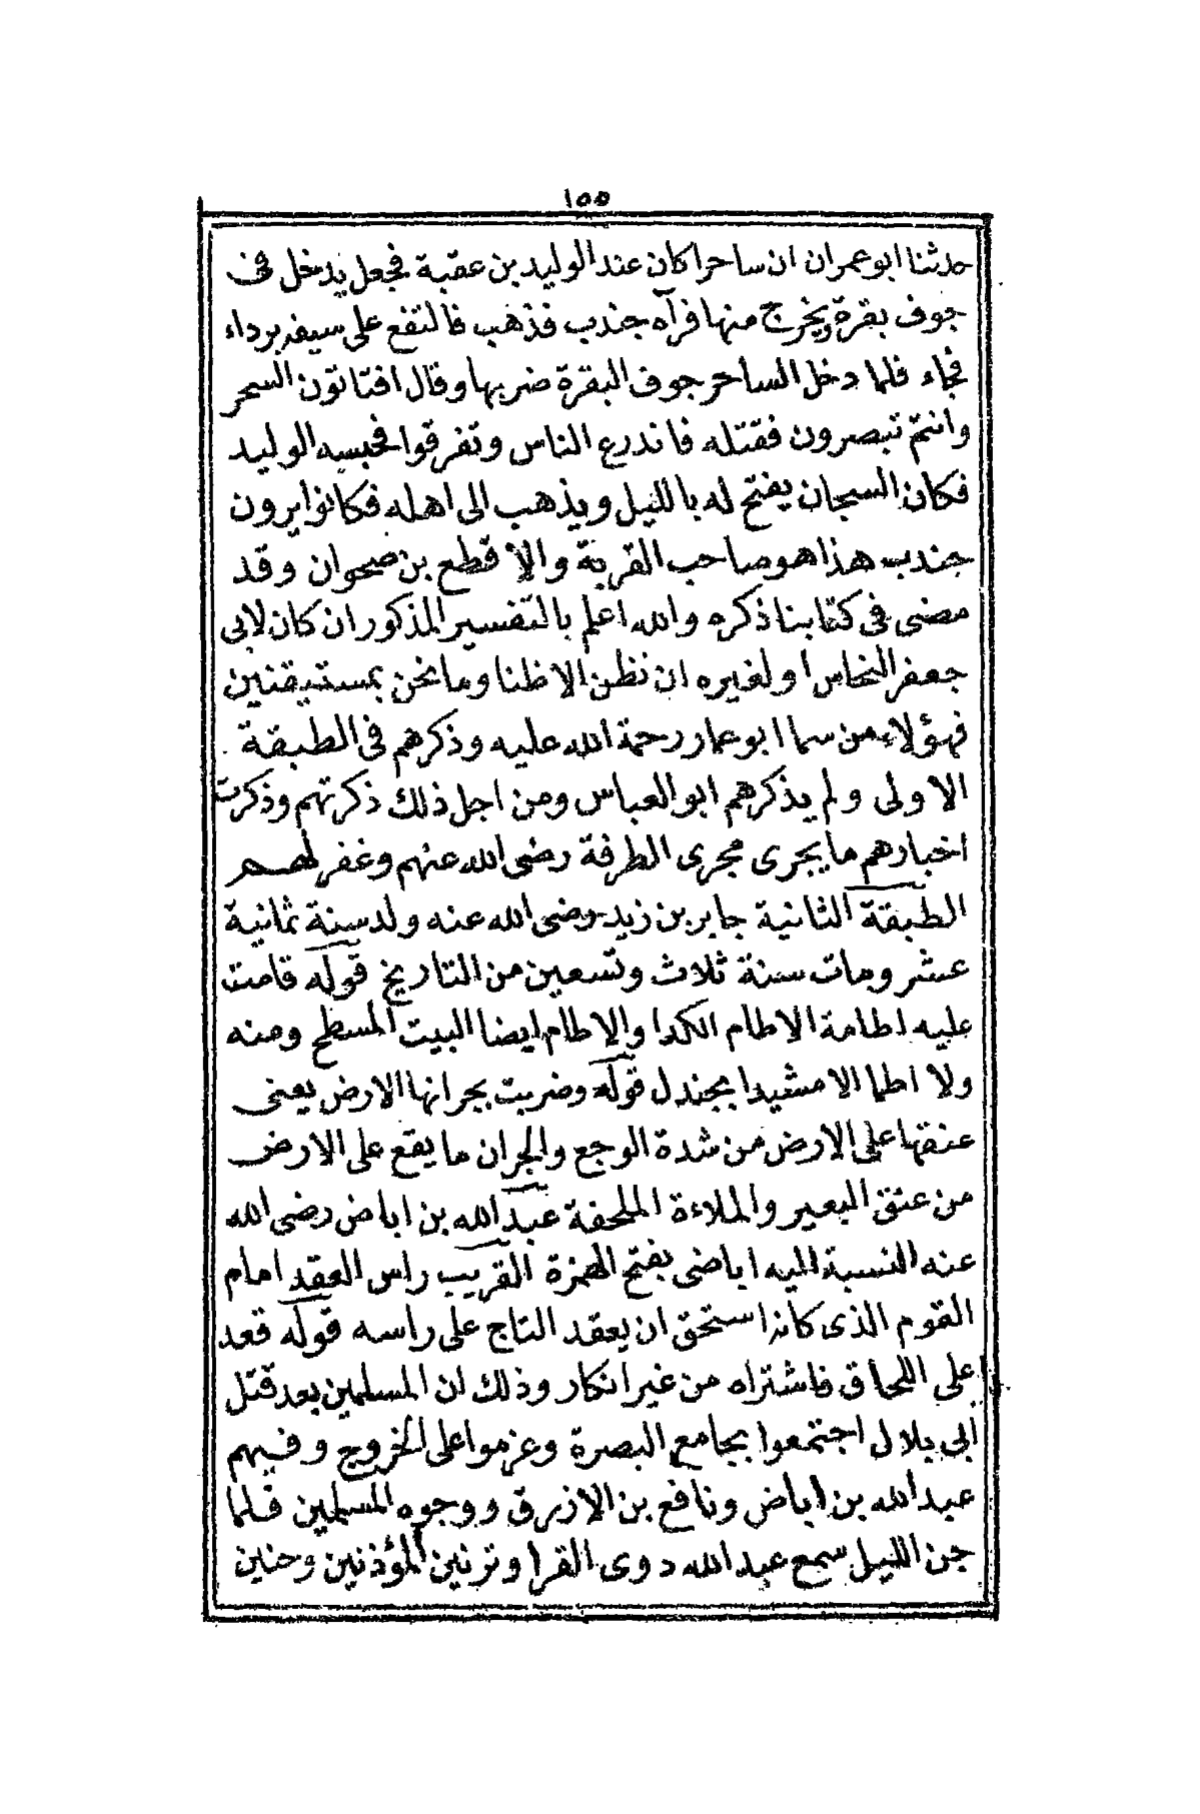 ١٥٥
حدثنا ابو عمران ان ساحرا كان عند الوليد بن عقبة فجعل يدخل فى
جوف بقرة ويخرج منها فرآه جندب فذهب فالتفع على سيفه برداء
فجاء فلما دخل الساحر جوف البقرة ضربها وقال افتاتون السحر
وانتم تبصرون فقتله فاندرع الناس وتفرقوا فحبسه الوليد
فكان السجان يفتح له بالليل ويذهب الى اهله فكانوا يرون
جندب هذا هو صاحب القربة والاقطع بن صحوان وقد
مضى فى كتابنا ذكره والله اعلم بالتفسير المذكور ان كان لابى
جعفر النحاس او لغيره ان نظن الا ظنا وما نحن بمستيقنين
فهؤلاء من سما ابو عمار رحمة الله عليه وذكرهم فى الطبقة
الاولى ولم يذكرهم ابو العباس ومن اجل ذلك ذكرتهم وذكرت
اخبارهم ما يجرى مجرى الطرفة رضى الله عنهم وغفر لهم
الطبقة الثانية جابر بن زيد رضى الله عنه ولد سنة ثمانية
عشر ومات سنة ثلاث وتسعين من التاريخ قوله قامت
عليه اطامة الاطام الكدا والاطام ايضا البيت المسطح ومنه
ولا اطما الا مشيدا بجندل قوله وضربت بجرانها الارض يعنى
عنقها على الارض من شدة الوجع والجران ما يقع على الارض
من عنق البعير والملاءة الملحفة عبد الله بن اباض رضى الله
عنه النسبة اليه اباضى بفتح الهمزة القريب راس العقد امام
القوم الذى كانه استحق ان يعقد التاج على راسه قوله قعد
على اللحاق فاشتراه من غير انكار وذلك ان المسلمين بعد قتل
ابى بلال اجتمعوا بجامع البصرة وعزموا على الخروج وفيهم
عبد الله بن اباض ونافع بن الازرق ووجوه المسلمين فلما
جن الليل سمع عبد الله دوى القرا وترنين المؤذنين وحنين